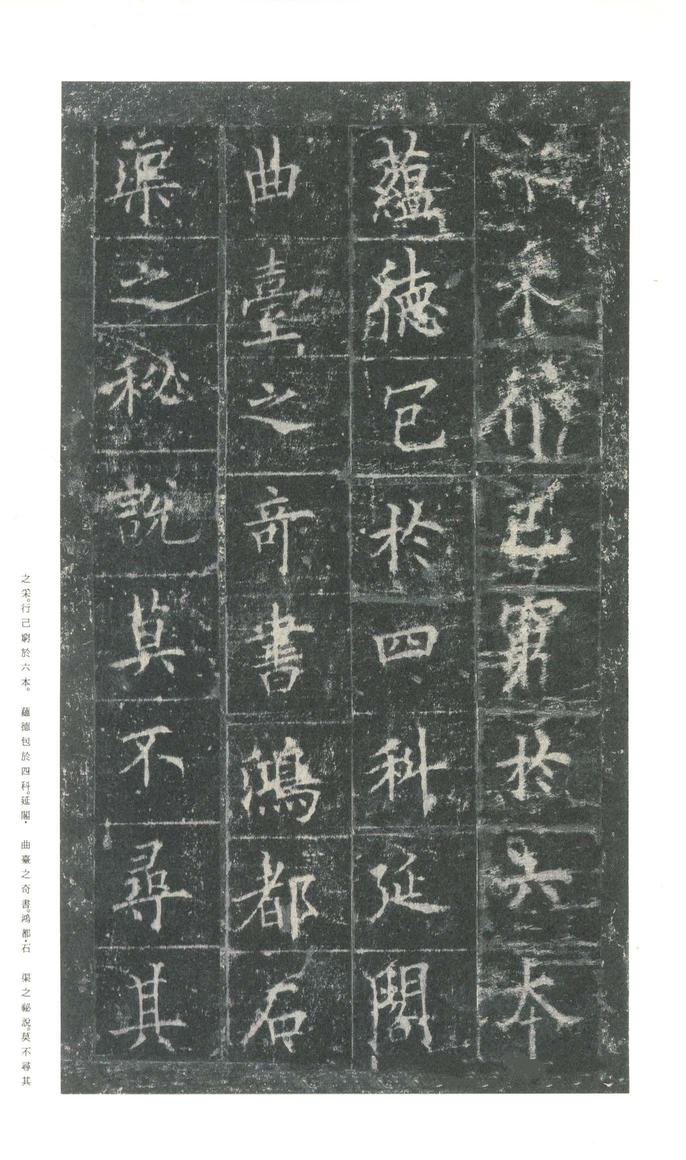 之采行己窮於六本
蘊德包於四科延閣
曲臺之奇書鴻都石
渠之秘說莫不尋其
之采。行己窮於六本。 蘊德包於四科。延閣· 曲臺之奇書。鴻都·石 渠之祕說。莫不尋其